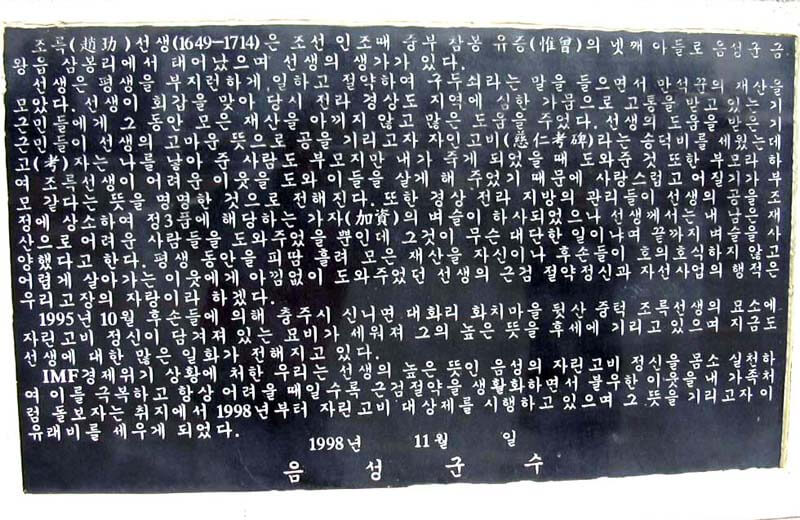 조륵(趙玏)선생(1649-1714)은 조선 인조때 증부 참봉 유증(惟曾)의 넷째 아들로 음성군 금
왕읍 삼봉리에서 태어났으며 선생의 생가가 있다.
선생은 평생을 부지런하게 일하고 절약하여 구두쇠라는 말을 들으면서 만석꾼의 재산을
모았다. 선생이 회갑을 맞아 당시 전라 경상도 지역에 심한 가뭄으로 고통을 받고 있는 기
근민들에게 그 동안 모은 재산을 아끼지 않고 많은 도움을 주었다. 선생의 도움을 받은 기
근민들이 선생의 고마운 뜻으로 공을 기리고자 자인고비(慈仁考碑)라는 송덕비를 세웠는데
고(考)자는 나를 낳아 준 사람도 부모지만 내가 죽게 되었을 때 도와준것 또한 부모라 하
여 조륵선생이 어려운 이웃을 도와 이들을 살게 해 주었기 때문에 사랑스럽고 어질기가 부
모 같다는 뜻을 명명한 것으로 전해진다. 또한 경상 전라 지방의 관리들이 선생의 공을 조
정에 상소하여 정3품에 해당하는 가자(加資)의 벼슬이 하사되었으나 선생께서는 내 남은 재
산으로 어려운 사람들을 도와주었을 뿐인데 그것이 무슨 대단한 일이냐며 끝까지 벼슬을 사
양했다고 한다. 평생 동안을 피땀 흘려 모은 재산을 자신이나 후손들이 호의호식하지 않고
어렵게 살아가는 이웃에게 아낌없이 도와주었던 선생의 근검 절약정신과 자선사업의 행적은
우리고장의 자랑이라 하겠다.
1995년 10월 후손들에 의해 충주시 신니면 대화리 화치마을 뒷산 중턱 조륵선생의 묘소에
자린고비 정신이 담겨져 있는 묘비가 세워져 그의 높은 뜻을 후세에 기리고 있으며 지금도
선생에 대한 많은 일화가 전해지고 있다.
IMF경제위기 상황에 처한 우리는 선생의 높은 뜻인 음성의 자린고비 정신을 몸소 실천하
여 이를 극복하고 항상 어려울 때일 수록 근검절약을 생활화하면서 불우한 이웃을 내 가족처
럼 돌보자는 취지에서 1998년부터 자린고비 대상제를 시행하고 있으며 그 뜻을 기리고자 이
유래비를 세우게 되었다.
1998년 11월 일
음 성 군 수